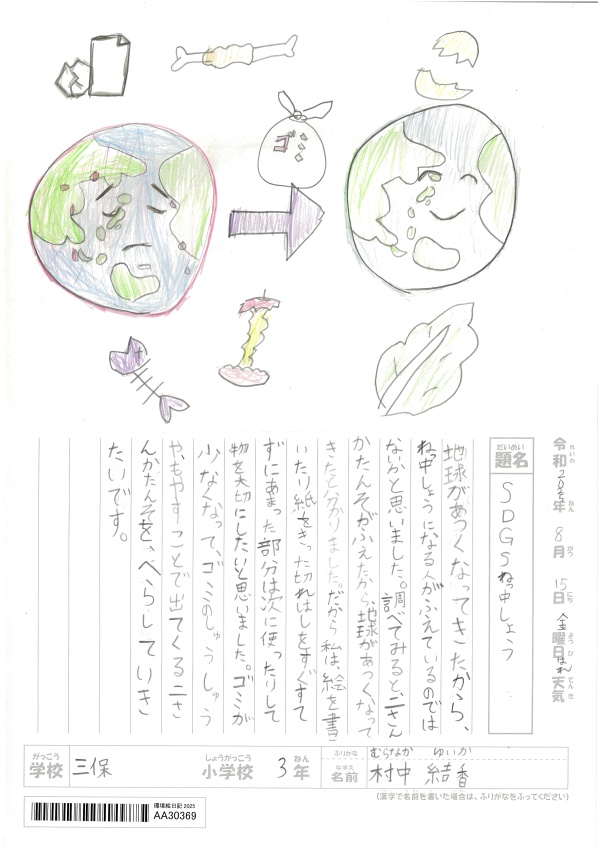 ゴミ
令和2025年 8月 15日 金曜日 はれ 天気
れいわ ねん がつ にち ようび てんき
だいめい
題名
SDGSねっ中しょう
地球があつくなってきたから、
ね中しょうになる人がふえているのでは
ないかと思いました。調べてみると、二さん
かたんそがふえたから、地球があつくなって
きたと分かりました。だから私は、絵を書
いたり紙をきった切れはしをすぐすて
ずにあまった部分は次に使ったりして
物を大切にしたいと思いました。ゴミが
少なくなって、ゴミのしゅうしゅう
や、もやすことで出てくる二さ
んかたんそを、へらしていき
たいです。
がっこう
学校 三保
しょうがっこう ねん
小学校 3年
ふりがな むらなか ゆいか
なまえ
名前 村中 結香
(漢字で名前を書いた場合は、ふりがなをふってください)
環境絵日記 2025
AA30369